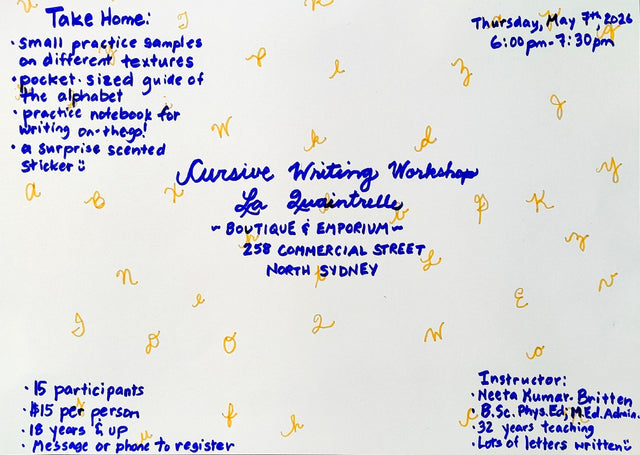 Take Home:
• small practice samples
on different textures
• pocket-sized guide of
the alphabet
• practice notebook for
writing on-the-go!
• a surprise scented
sticker
Thursday, May 7th, 2026
6:00pm-7:30pm
Cursive Writing Workshop
La Quaintrelle
~ BOUTIQUE & EMPORIUM ~
258 COMMERCIAL STREET
NORTH SYDNEY
• 15 participants
• $15 per person
• 18 years & up
• Message or phone to register
Instructor:
• Neeta Kumar-Britten
• B.Sc. Phys.Ed; M.Ed. Admin.
• 32 years teaching
• Lots of letters written